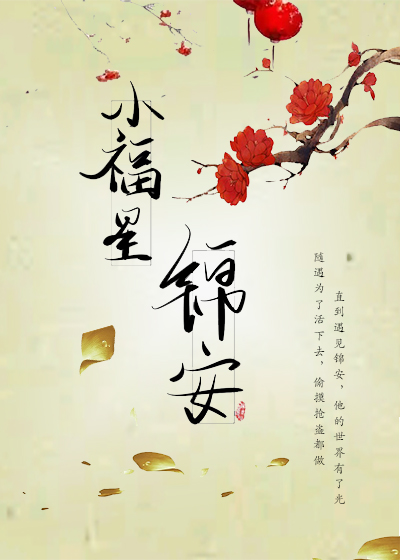 小福星
锦安
直到遇见锦安，他的世界有了光
随遇为了活下去，偷摸抢盗都做